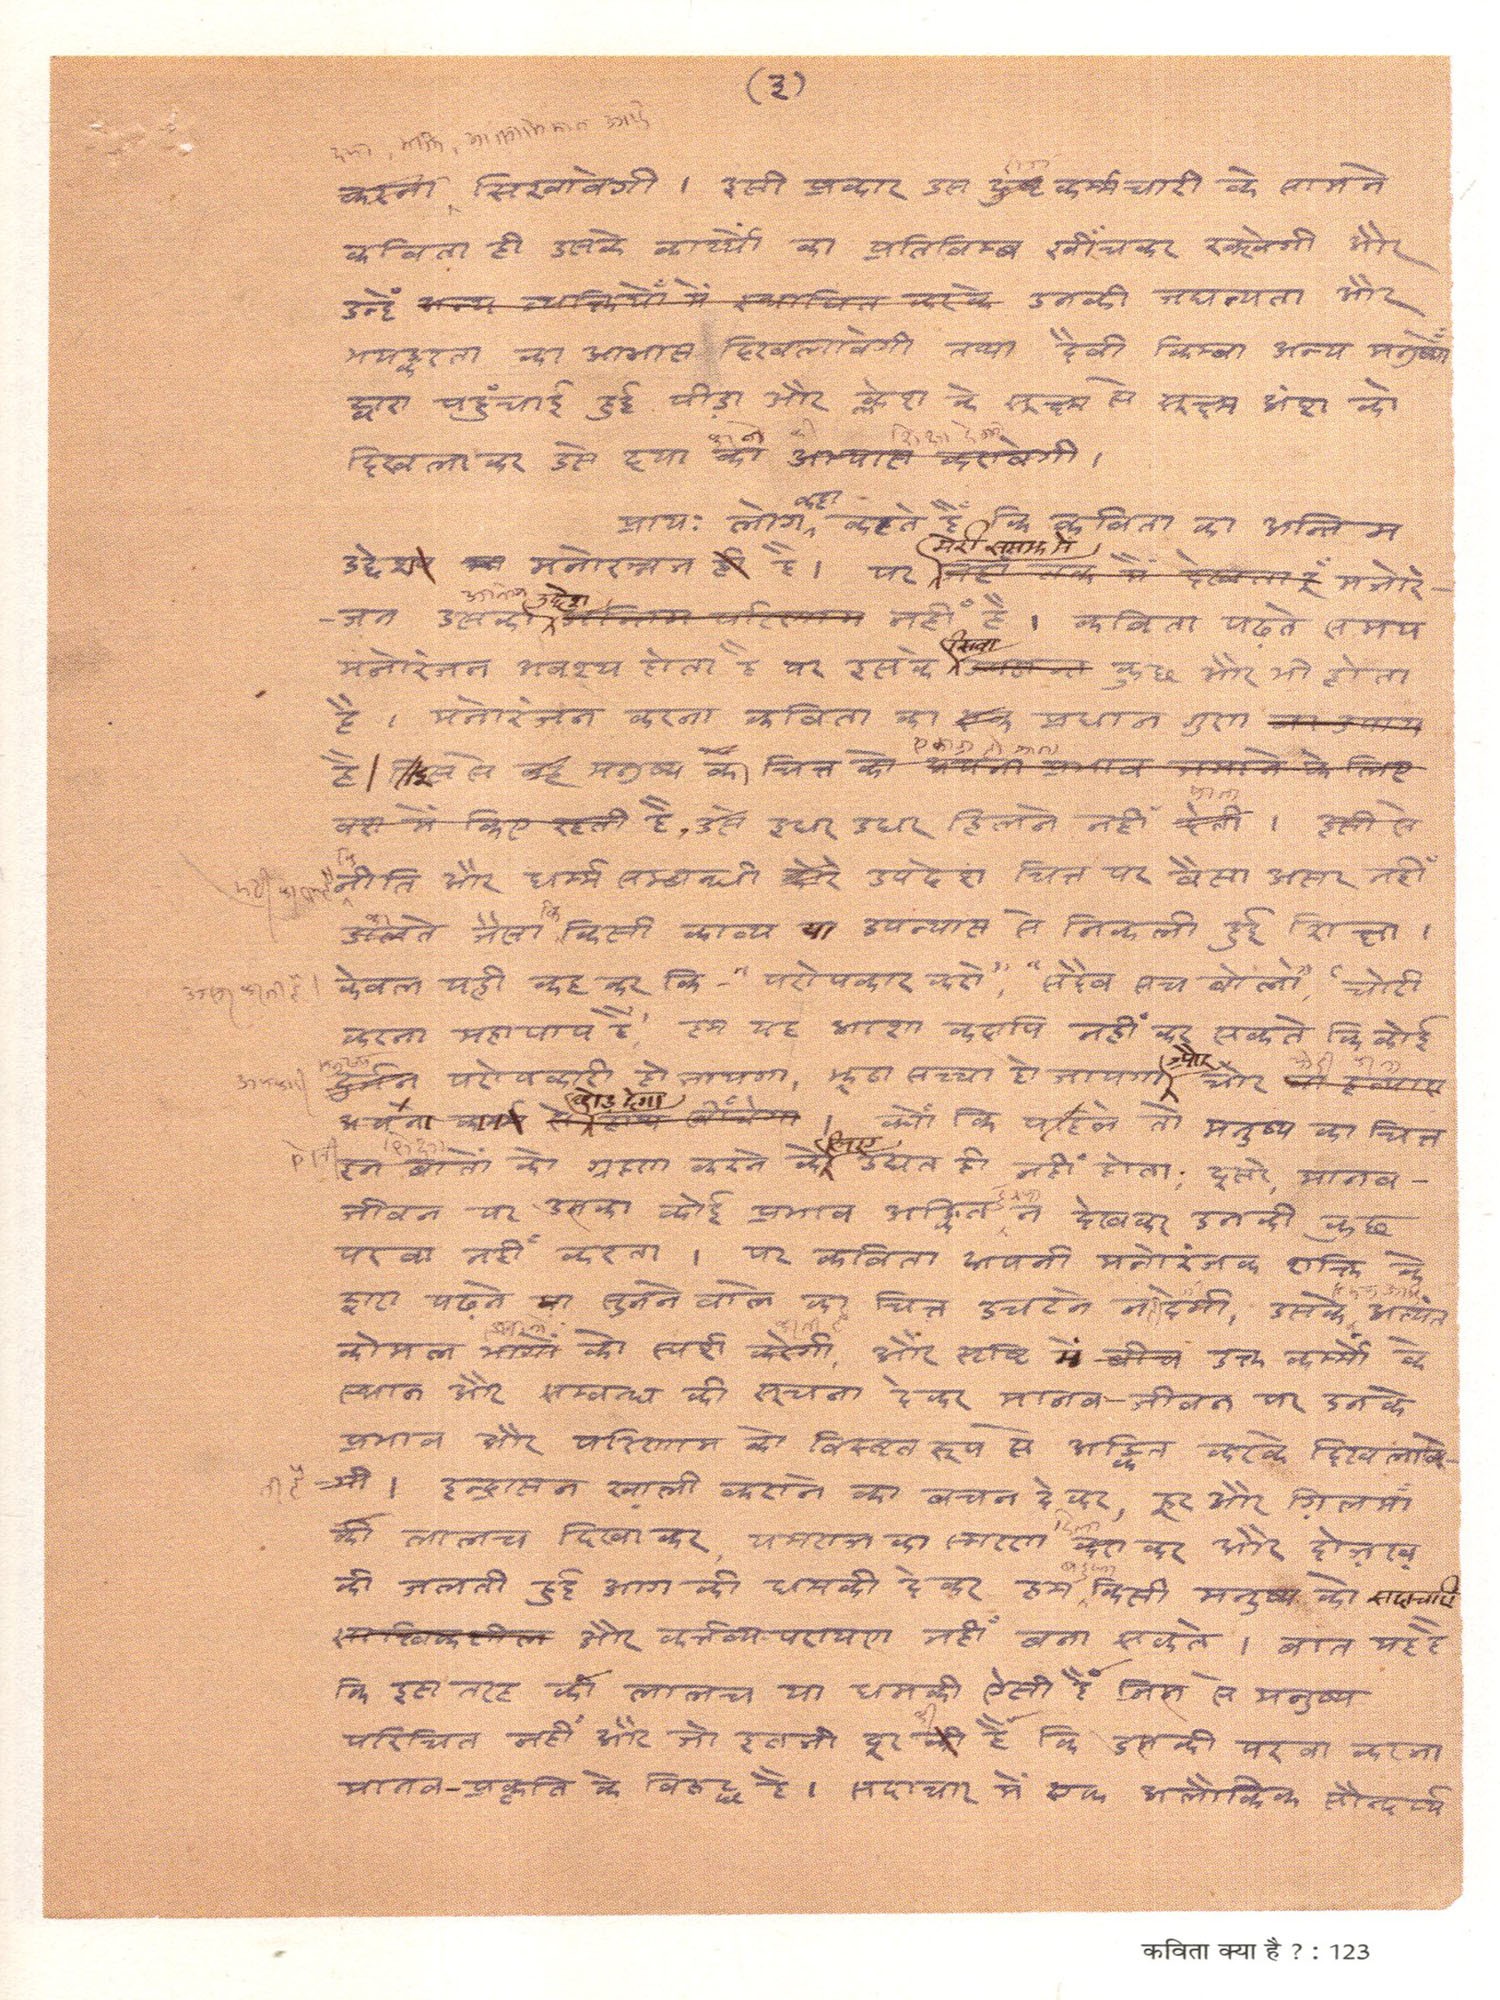 (३)
करना सिखावेगी । इसी प्रकार उस दुष्ट कर्म्मचारी के सामने
कविता ही उसके कार्य्यों का प्रतिबिम्ब खींचकर रक्खेगी और
उन्हें अन्य व्यक्तियों में स्थापित करके उनकी जघन्यता और
भयङ्करता का आभास दिखलावेगी तथा दैवी किम्बा अन्य मनुष्यों
द्वारा पहुँचाई हुई पीड़ा और क्लेश के सूक्ष्म से सूक्ष्म अंश को
करने की शिक्षा देगी
दिखलाकर उसे दया का अभ्यास करावेगी ।
कहा
प्रायः लोग कहते हैं कि कविता का अन्तिम
मेरी समझ में
उद्देश्य मनोरञ्जन ही है । पर जहाँ तक मैं देखता हूँ मनोरं-
उद्देश
-जन उसका अन्तिम परिणाम नहीं है । कविता पढ़ते समय
सिवा
मनोरंजन अवश्य होता है पर इसके कुछ और भी होता
है । मनोरंजन करना कविता का एक प्रधान गुण
है । इससे वह मनुष्य के चित्त को अपना प्रभाव जमाने के लिए
वश में किए रहती है, उसे इधर उधर हिलने नहीं देती । इसी से
कि
नीति और धर्म्म सम्बन्धी कोरे उपदेश चित्त पर वैसा असर नहीं
कि
डालते जैसा किसी काव्य या उपन्यास से निकली हुई शिक्षा ।
केवल यही कह कर कि - "परोपकार करो", "सदैव सच बोलो", "चोरी
करना महापाप है" हम यह आशा कदापि नहीं कर सकते कि कोई
मनुष्य
और
दुर्जन परोपकारी हो जायगा, झूठा सच्चा हो जायगा चोर
छोड़ देगा
अपना कर्म से हाथ खींचेगा । क्यों कि पहिले तो मनुष्य का चित्त
शिक्षा
लिए
इन बातों को ग्रहण करने को उद्यत ही नहीं होता; दूसरे, मानव-
जीवन पर उसका कोई प्रभाव अङ्कित न देखकर उनकी कुछ
परवा नहीं करता । पर कविता अपनी मनोरंजक शक्ति के
द्वारा पढ़ने या सुनने वाले का चित्त उचटने न देगी, उसके अत्यंत
कोमल भागों को स्पर्श करेगी, और सृष्टि में बीच उक्त कर्म्मों के
स्थान और सम्बन्ध की सूचना देकर मानव-जीवन पर उनके
प्रभाव और परिणाम को विस्तृत रूप से अङ्कित करके दिखलावे-
ती है
-गी । इन्द्रासन खाली कराने का वचन देकर, हूर और ग़िलमाँ
दिला
की लालच दिखाकर, यमराज का स्मरण करा कर और दोज़ख़
की जलती हुई आग की धमकी देकर हम किसी मनुष्य को सदाचारी
सात्विकशील और कर्त्तव्यपरायण नहीं बना सकते । बात यह है
कि इस तरह की लालच या धमकी ऐसी हैं जिस से मनुष्य
परिचित नहीं और जो इतनी दूर की हैं कि उसकी परवा करना
मानव-प्रकृति के विरुद्ध है । सदाचार में एक अलौकिक सौन्दर्य्य
कविता क्या है ? : 123